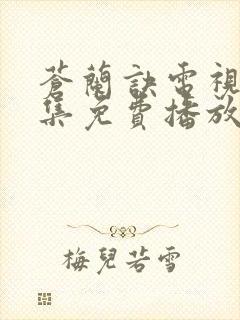 蒼蘭訣電視
集免費播放
梅兒若雪